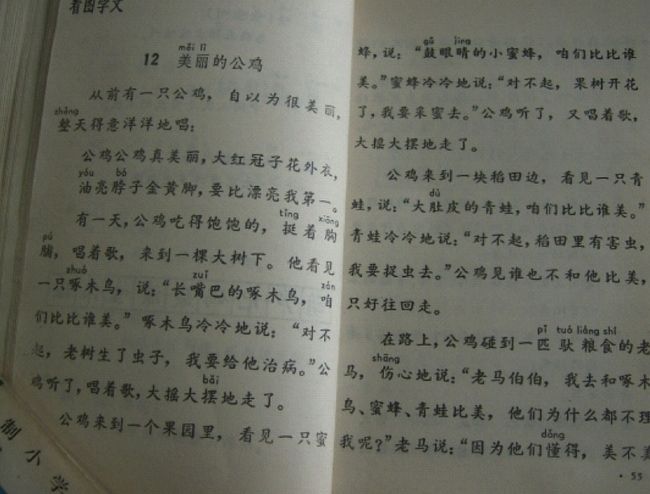 看图学文
12 美丽的公鸡
měi lì
从前有一只公鸡，自以为很美丽，
zhěng
整天得意洋洋地唱：
公鸡公鸡真美丽，大红冠子花外衣，
yóu bó
油亮脖子金黄脚，要比漂亮我第一。
tǐng xiōng
有一天，公鸡吃得饱饱的，挺着胸
pú
脯，唱着歌，来到一棵大树下。他看见
zhuó zuǐ zán
一只啄木鸟，说：“长嘴巴的啄木鸟，咱
们比比谁美。”啄木鸟冷冷地说：“对不
起，老树生了虫子，我要给他治病。”公
bǎi
鸡听了，唱着歌，大摇大摆地走了。
公鸡来到一个果园里，看见一只蜜
gǔ jīng
蜂，说：“鼓眼睛的小蜜蜂，咱们比比谁
美。”蜜蜂冷冷地说：“对不起，果树开花
了，我要采蜜去。”公鸡听了，又唱着歌，
大摇大摆地走了。
公鸡来到一块稻田边，看见一只青
dù
蛙，说：“大肚皮的青蛙，咱们比比谁美。”
青蛙冷冷地说：“对不起，稻田里有害虫，
我要捉虫去。”公鸡见谁也不和他比美，
只好往回走。
pǐ tuó liáng shi
在路上，公鸡碰到一匹驮粮食的老
shāng
马，伤心地说：“老马伯伯，我去和啄木
鸟、蜜蜂、青蛙比美，他们为什么都不理
dǒng
我呢？”老马说：“因为他们懂得，美不美
· 55
制 小 学